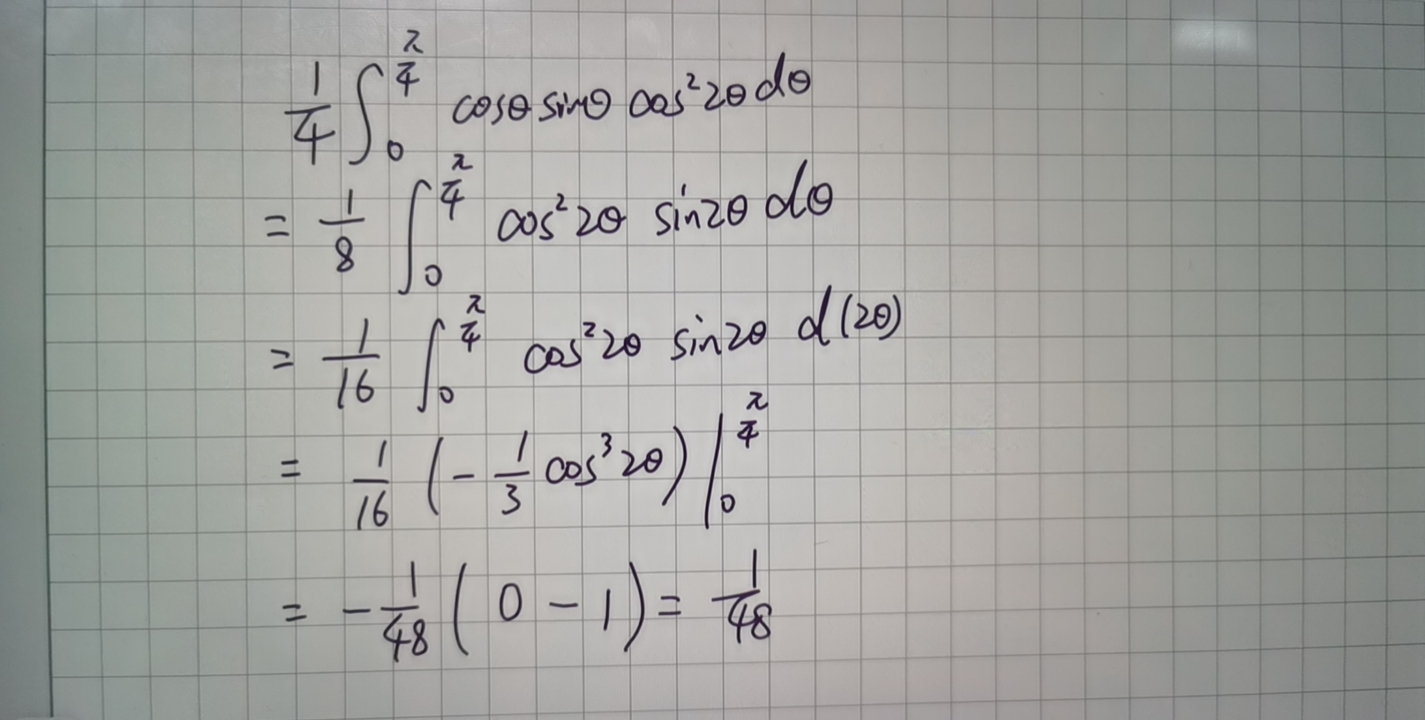 $\frac{1}{4}\int_0^{\frac{\pi}{4}} \cos\theta \sin\theta \cos^2 2\theta \, d\theta$
$= \frac{1}{8}\int_0^{\frac{\pi}{4}} \cos^2 2\theta \sin 2\theta \, d\theta$
$= \frac{1}{16}\int_0^{\frac{\pi}{4}} \cos^2 2\theta \sin 2\theta \, d(2\theta)$
$= \frac{1}{16}\left(-\frac{1}{3}\cos^3 2\theta\right)\Big|_0^{\frac{\pi}{4}}$
$= -\frac{1}{48}(0-1) = \frac{1}{48}$